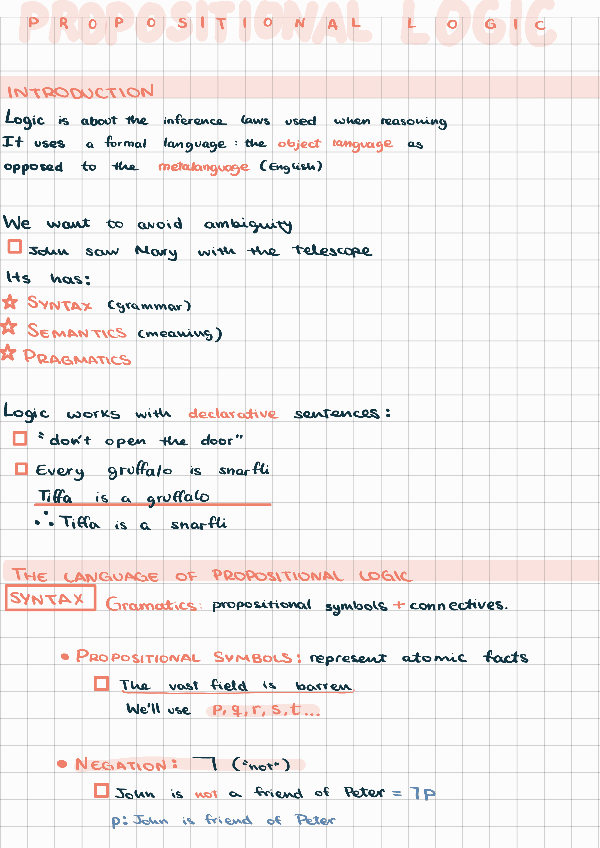 PROPOSITIONAL LOGIC
INTRODUCTION
Logic is about the inference laws used when reasoning
It uses a formal language : the object language as
opposed to the metalanguage (English)
We want to avoid ambiguity
John saw Mary with the telescope
Its has:
☆ SYNTAX (grammar)
☆ SEMANTICS (meaning)
☆ PRAGMATICS
Logic works with declarative sentences:
"don't open the door"
Every gruffalo is snarfli
Tiffa is a gruffalo
∴ Tiffa is a snarfli
THE LANGUAGE OF PROPOSITIONAL LOGIC
SYNTAX Gramatics: propositional symbols + connectives.
• PROPOSITIONAL SYMBOLS: represent atomic facts
The vast field is barren
We'll use p, q, r, s, t...
• NEGATION: ¬ ("not")
John is not a friend of Peter = ¬p
p: John is friend of Peter